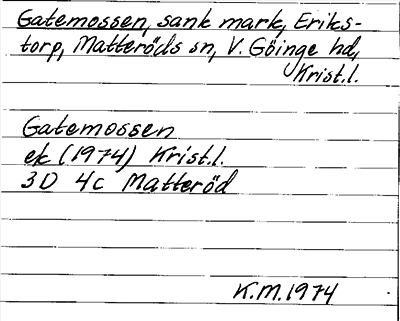 Gatemossen, sank mark, Eriks-
torp, Matteröds sn, V. Göinge hd,
Krist.l.
Gatemossen
ek (1974) Krist.l.
3D 4c Matteröd
K.M.1974